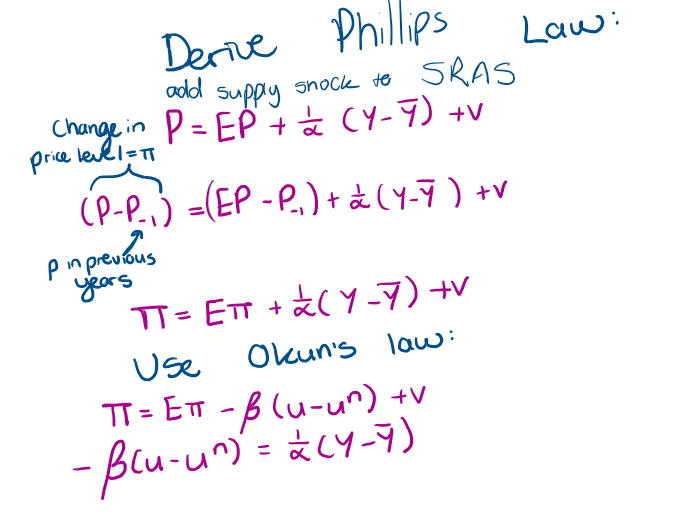 Derive Phillips Law:
add supply shock to SRAS
Change in
price level = π
P = EP + 1/α (Y - Ȳ) + V
(P - P₋₁) = (EP - P₋₁) + 1/α (Y - Ȳ) + V
P in previous
years
π = Eπ + 1/α (Y - Ȳ) + V
Use Okun's law:
π = Eπ - β (u - uⁿ) + V
- β(u - uⁿ) = 1/α (Y - Ȳ)